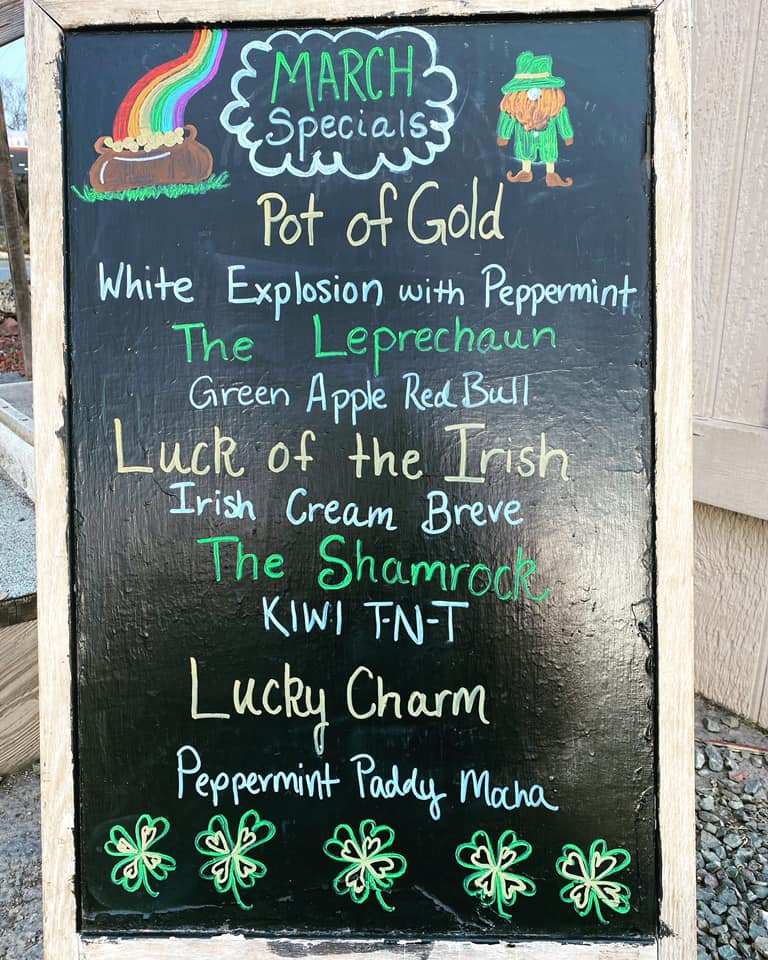 MARCH
Specials
Pot of Gold
White Explosion with Peppermint
The Leprechaun
Green Apple Red Bull
Luck of the Irish
Irish Cream Breve
The Shamrock
KIWI T-N-T
Lucky Charm
Peppermint Paddy Mocha